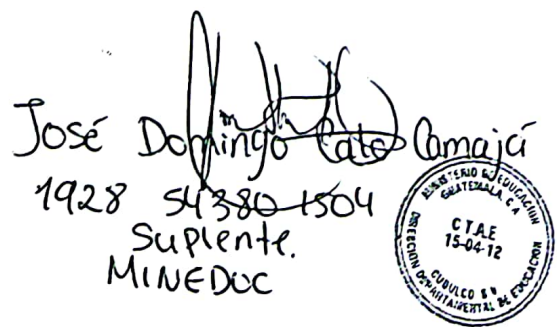 José Domingo Calo Camajá
1928 54380 1504
Suplente.
MINEDUC
MINISTERIO DE EDUCACIÓN
GUATEMALA, C.A.
CTAE
15-04-12
CUBULCO B.V.
DIRECCIÓN DEPARTAMENTAL DE EDUCACIÓN